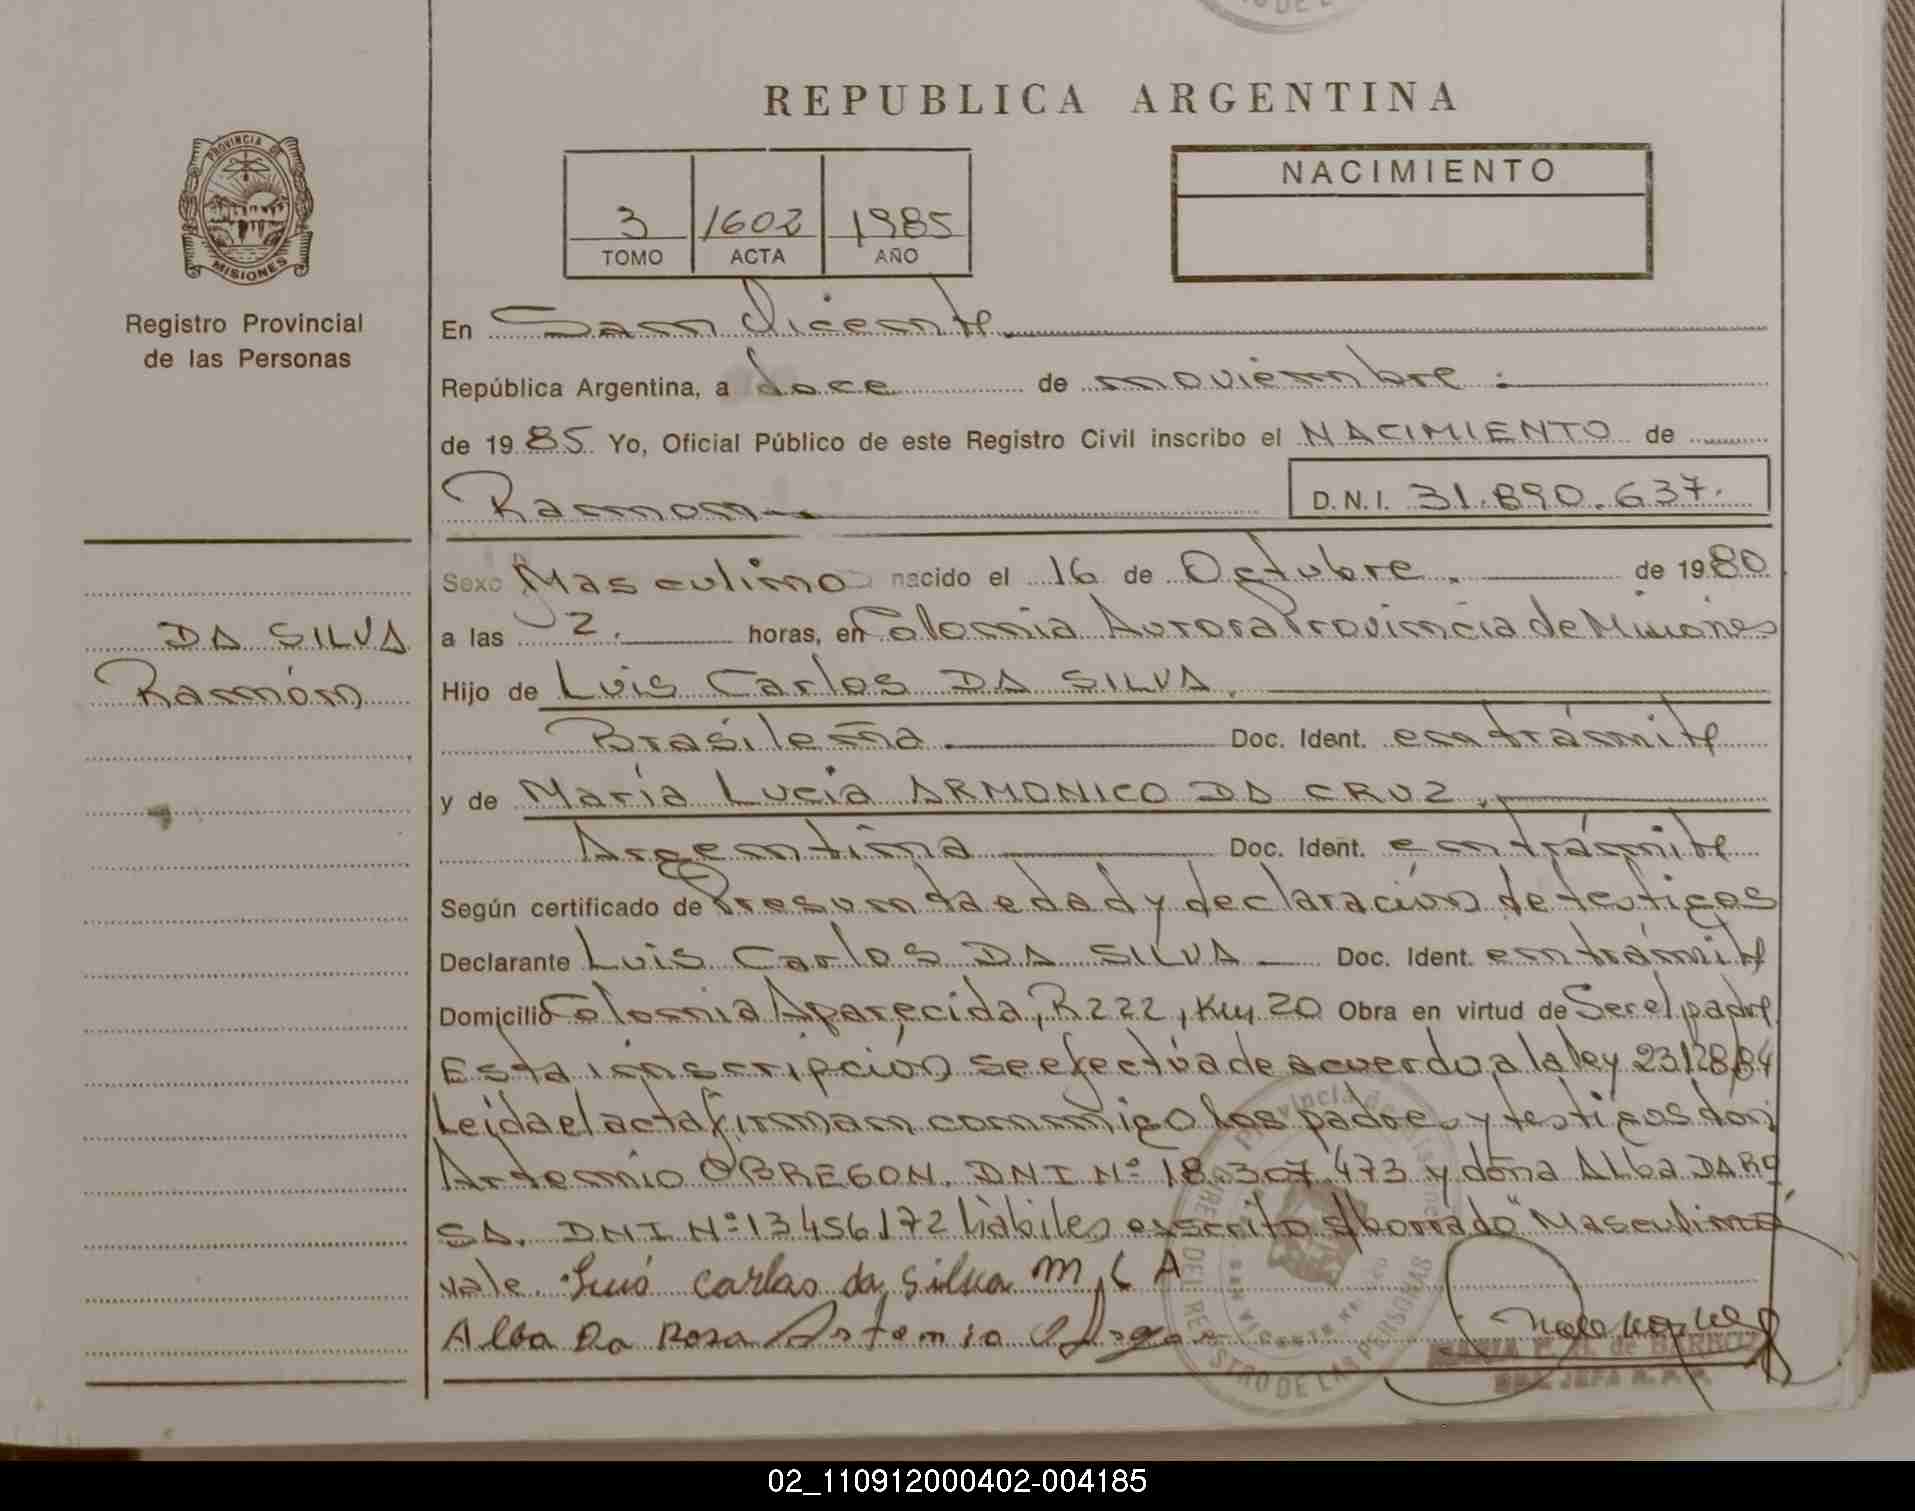 REPUBLICA ARGENTINA
PROVINCIA DE
MISIONES
Registro Provincial
de las Personas
3 1602 1985
TOMO ACTA AÑO
NACIMIENTO
En San Vicente
República Argentina, a doce de noviembre
de 1985 Yo, Oficial Público de este Registro Civil inscribo el NACIMIENTO de
Ramon
D.N.I. 31.890.637.
Sexo Masculino nacido el 16 de Octubre. de 1980
DA SILVA
Ramón
a las 2. horas, en Colonia Aurora Provincia de Misiones
Hijo de Luis Carlos DA SILVA.
Brasileña. Doc. Ident. en trámite
y de María Lucia ARMONICO DA CRUZ.
Argentina Doc. Ident. en trámite
Según certificado de Presunta edad y declaración de testigos
Declarante Luis Carlos DA SILVA Doc. Ident. en trámite
Domicilio Colonia Aparecida, R222, Km 20 Obra en virtud de Ser el padre
Esta inscripción se efectúa de acuerdo a la ley 23128/84
Leída el acta firman conmigo los padres y testigos don
Artemio OBREGON. DNI Nº 18.307.473 y doña Alba DA RO
SA. DNI Nº 13456172 hábiles escrito s/borrado "Masculino"
vale. Luis Carlos da Silva M L A
Alba Da Rosa Artemio
REGISTRO DE LAS PERSONAS
02_110912000402-004185